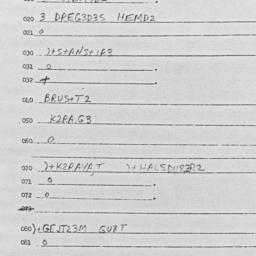 020 3 DREG3D3S HEMD2
021 0
030 )+S+ANS+1R3
031 0
032 +
040 BRUS+T2
050 K2RA.G3
060 0
070 )+K2RAVA,T
071 0
072 0
073
080 )+GEJT23M GU8T
081 0